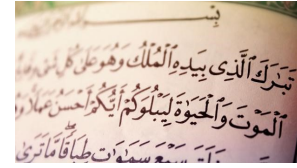 بِسْـــــمِ ٱللَّهِ
تَبَٰرَكَ ٱلَّذِى بِيَدِهِ ٱلْمُلْكُ وَهُوَ عَلَىٰ كُلِّ شَىْءٍ
ٱلْمَوْتَ وَٱلْحَيَوٰةَ لِيَبْلُوَكُمْ أَيُّكُمْ أَحْسَنُ عَمَلًا
سَبْعَ سَمَٰوَٰتٍ طِبَاقًا مَّا تَرَىٰ